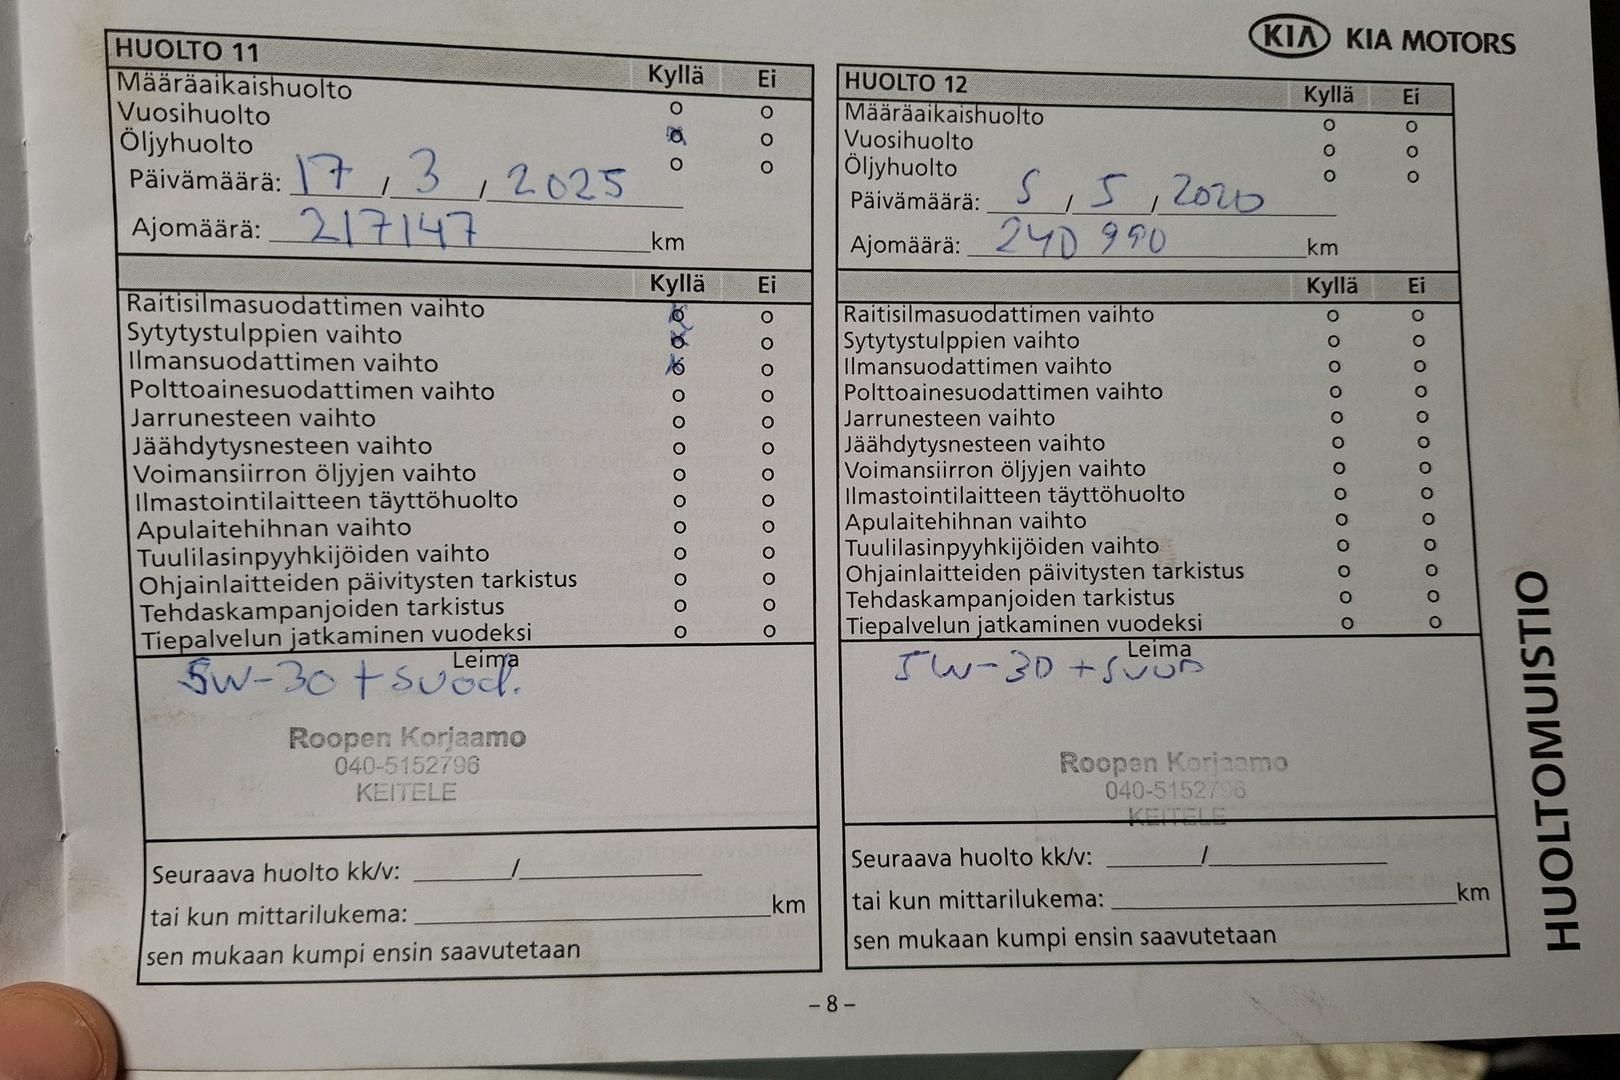 KIA KIA MOTORS
HUOLTO 11 Kyllä Ei
Määräaikaishuolto o o
Vuosihuolto o o
Öljyhuolto o o
Päivämäärä: 17 / 3 / 2025
Ajomäärä: 217147 km
Kyllä Ei
Raitisilmasuodattimen vaihto o o
Sytytystulppien vaihto o o
Ilmansuodattimen vaihto o o
Polttoainesuodattimen vaihto o o
Jarrunesteen vaihto o o
Jäähdytysnesteen vaihto o o
Voimansiirron öljyjen vaihto o o
Ilmastointilaitteen täyttöhuolto o o
Apulaitehihnan vaihto o o
Tuulilasinpyyhkijöiden vaihto o o
Ohjainlaitteiden päivitysten tarkistus o o
Tehdaskampanjoiden tarkistus o o
Tiepalvelun jatkaminen vuodeksi o o
Leima
5W-30 + suod.
Roopen Korjaamo
040-5152796
KEITELE
Seuraava huolto kk/v: ______/______
tai kun mittarilukema: ______ km
sen mukaan kumpi ensin saavutetaan
HUOLTO 12 Kyllä Ei
Määräaikaishuolto o o
Vuosihuolto o o
Öljyhuolto o o
Päivämäärä: 5 / 5 / 2020
Ajomäärä: 240 990 km
Kyllä Ei
Raitisilmasuodattimen vaihto o o
Sytytystulppien vaihto o o
Ilmansuodattimen vaihto o o
Polttoainesuodattimen vaihto o o
Jarrunesteen vaihto o o
Jäähdytysnesteen vaihto o o
Voimansiirron öljyjen vaihto o o
Ilmastointilaitteen täyttöhuolto o o
Apulaitehihnan vaihto o o
Tuulilasinpyyhkijöiden vaihto o o
Ohjainlaitteiden päivitysten tarkistus o o
Tehdaskampanjoiden tarkistus o o
Tiepalvelun jatkaminen vuodeksi o o
Leima
5W-30 + suod
Roopen Korjaamo
040-5152796
KEITELE
Seuraava huolto kk/v: ______/______
tai kun mittarilukema: ______ km
sen mukaan kumpi ensin saavutetaan
HUOLTOMUISTIO
– 8 –